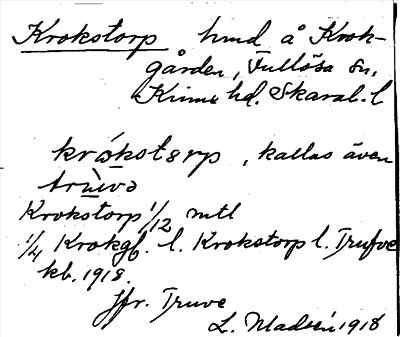 Krokstorp hmd å Krok-
gården, Fullösa sn,
Kinne hd. Skarab. l
krókstərp, kallas även
trùivə
Krokstorp 1/12 mtl
1/4 Krokgb. l. Krokstorp l. Trufve
kb. 1918.
Jfr. Truve
L. Madsén 1918